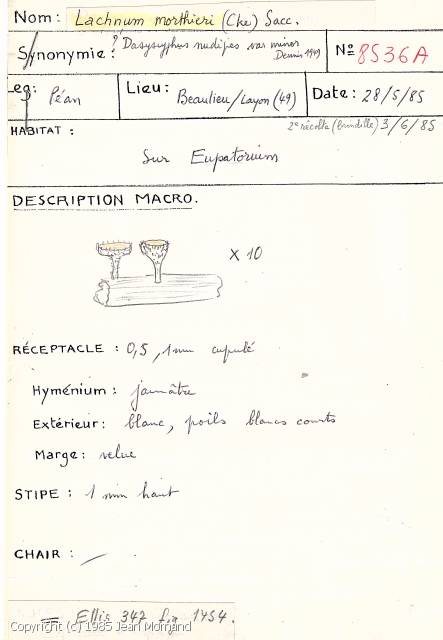 Nom: Lachnum morthieri (Cke) Sacc.
Synonymie: ? Dasyscyphus nudipes var minor
Dennis 1949
Nº 8536A
leg: Péan
Lieu: Beaulieu/Layon (49)
Date: 28/5/85
HABITAT :
2e récolte (brindille) 3/6/85
Sur Eupatorium
DESCRIPTION MACRO.
X 10
RÉCEPTACLE : 0,5, 1 mm cupulé
Hyménium : jaunâtre
Extérieur: blanc, poils blancs courts
Marge: velue
STIPE : 1 mm haut
CHAIR : —
= Ellis 342 fig 1454.
Copyright (c) 1985 Jean Mornand